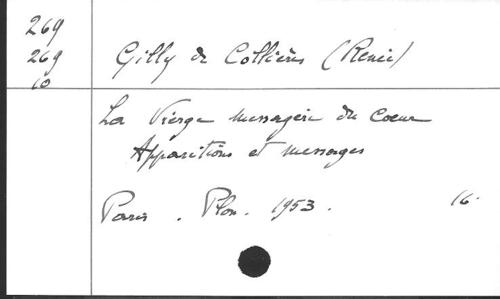 269
269
10
Gilly de Collières (Renée)
La Vierge messagère du coeur
Apparitions et messages
Paris . Plon . 1953 . 16.